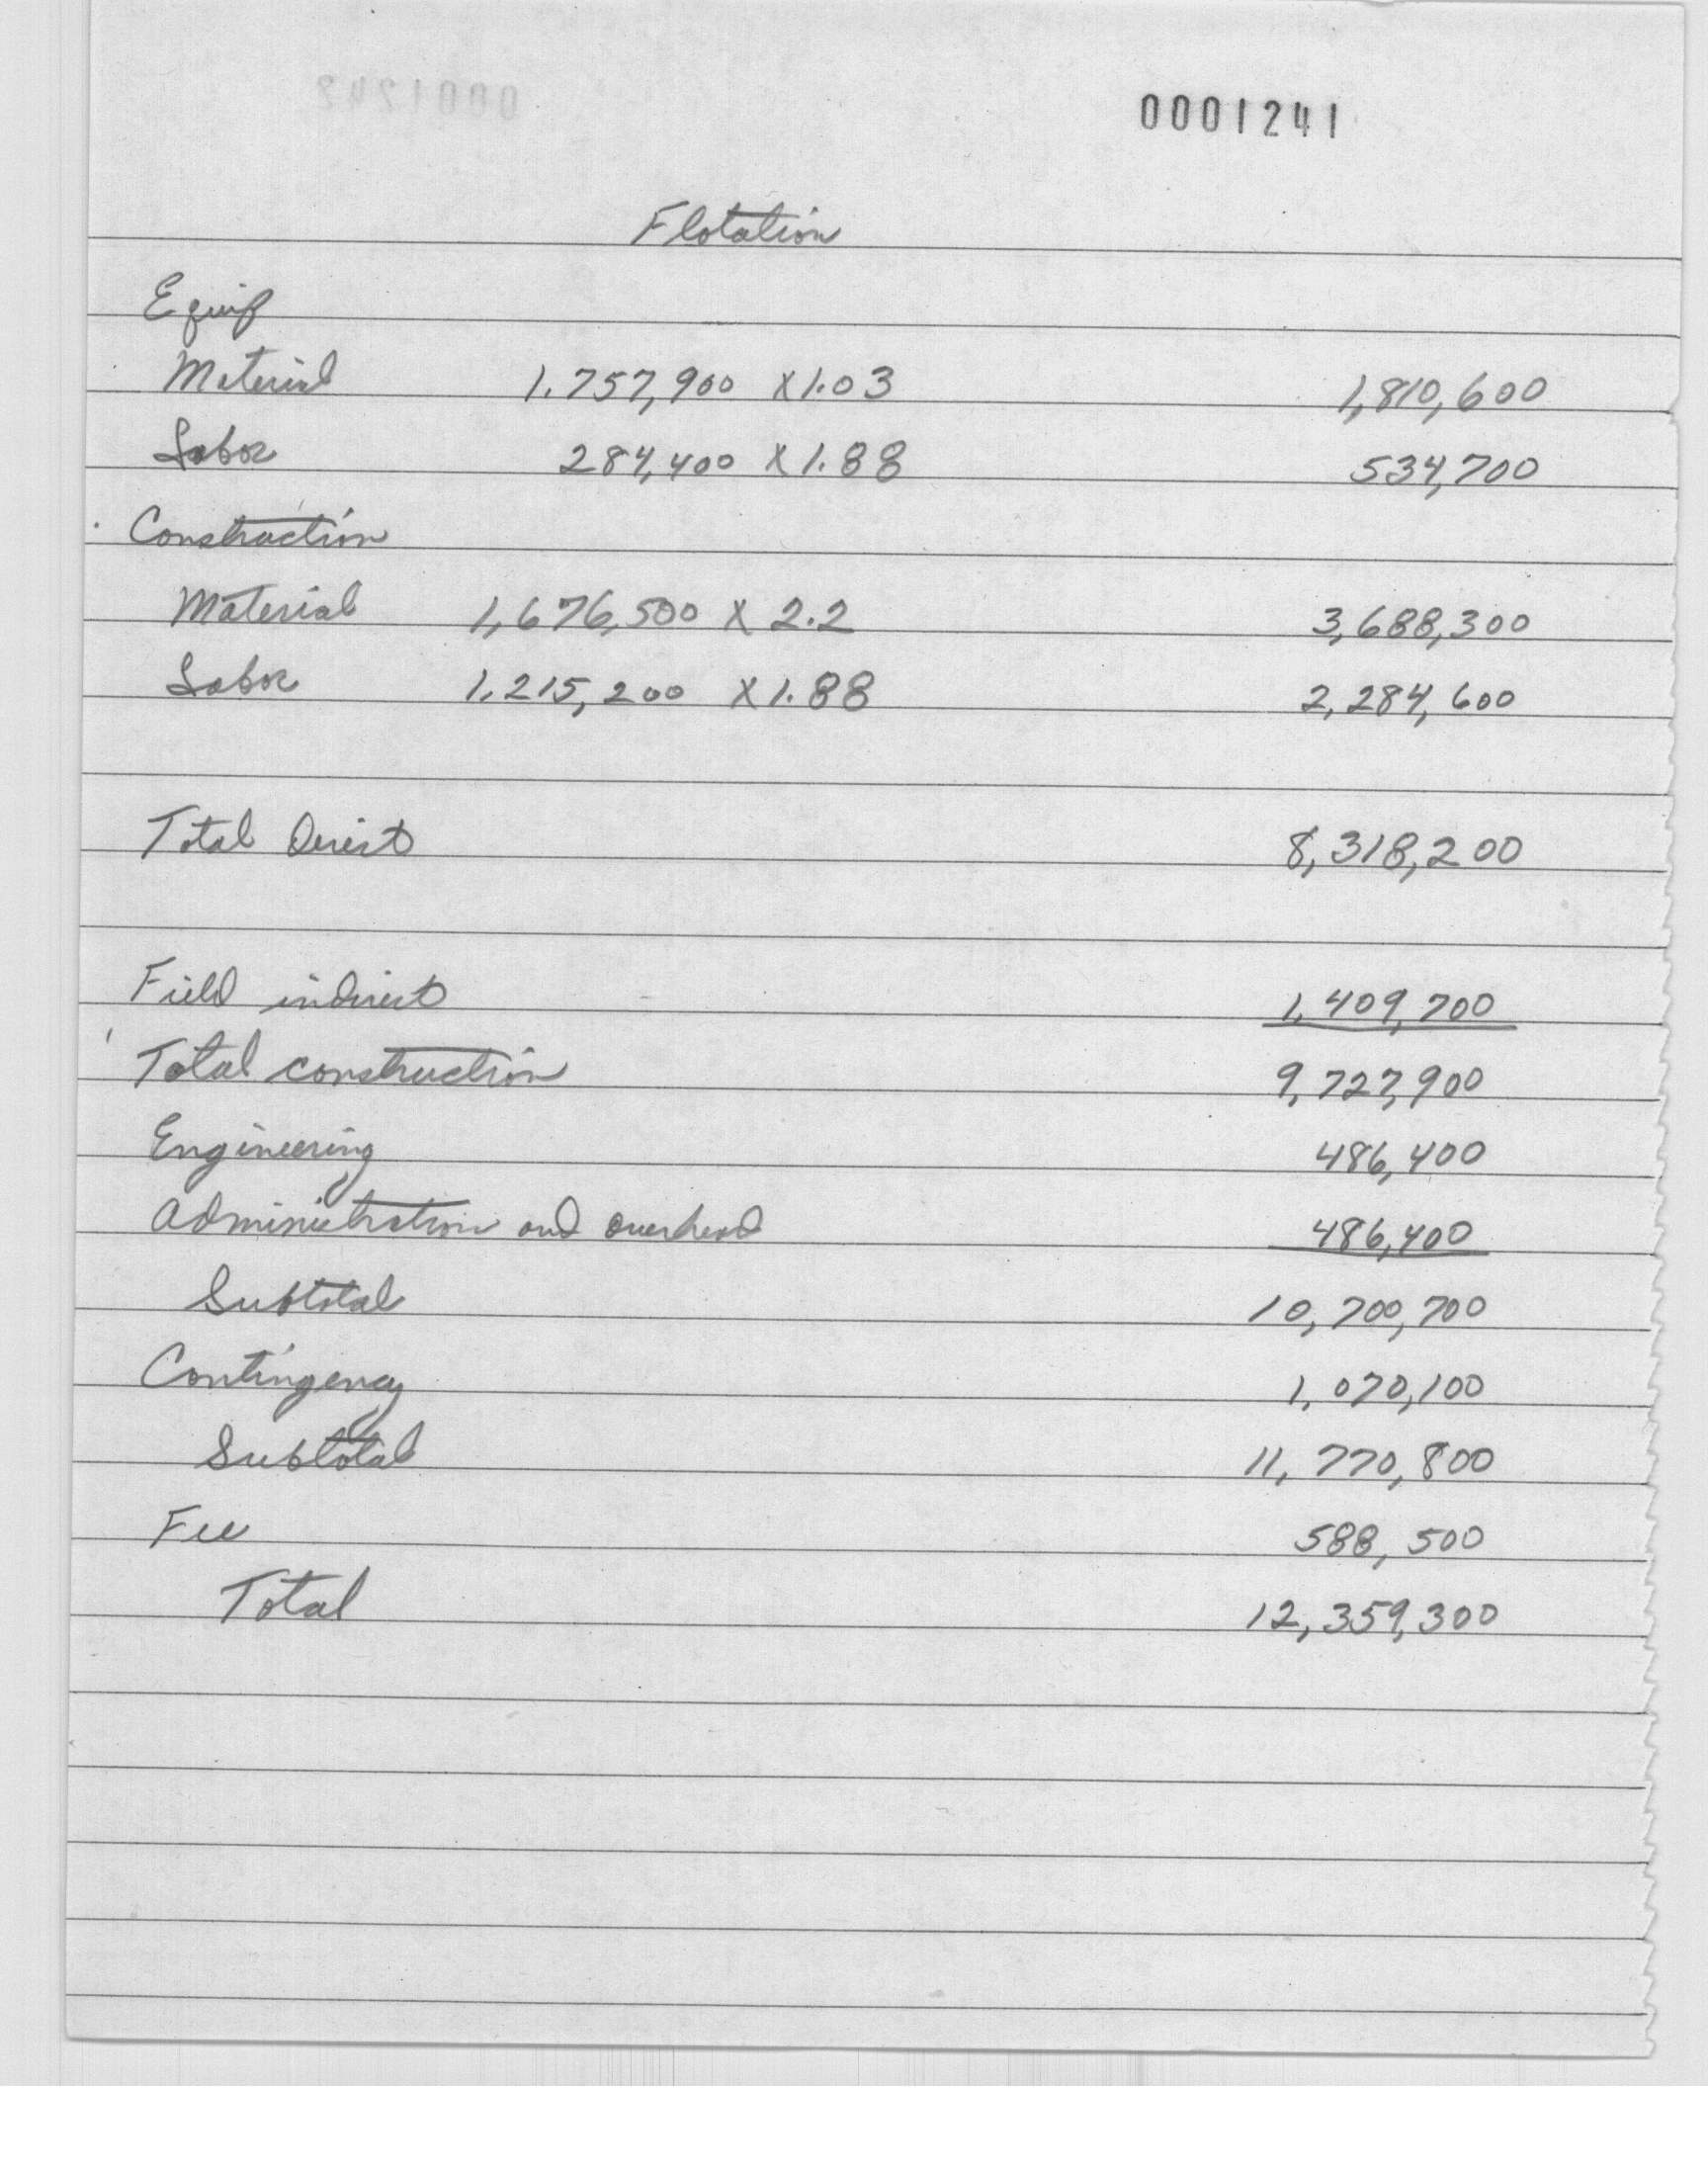 0001242
0001241
Flotation
Equip
Material 1.757,900 x1.03 1,810,600
Labor 284,400 x 1.88 534,700
Construction
Material 1,676,500 x 2.2 3,688,300
Labor 1,215,200 x1.88 2,284,600
Total Direct 8,318,200
Field indirect 1,409,700
Total construction 9,727,900
Engineering 486,400
Administration and overhead 486,400
Subtotal 10,700,700
Contingency 1,070,100
Subtotal 11,770,800
Fee 588,500
Total 12,359,300